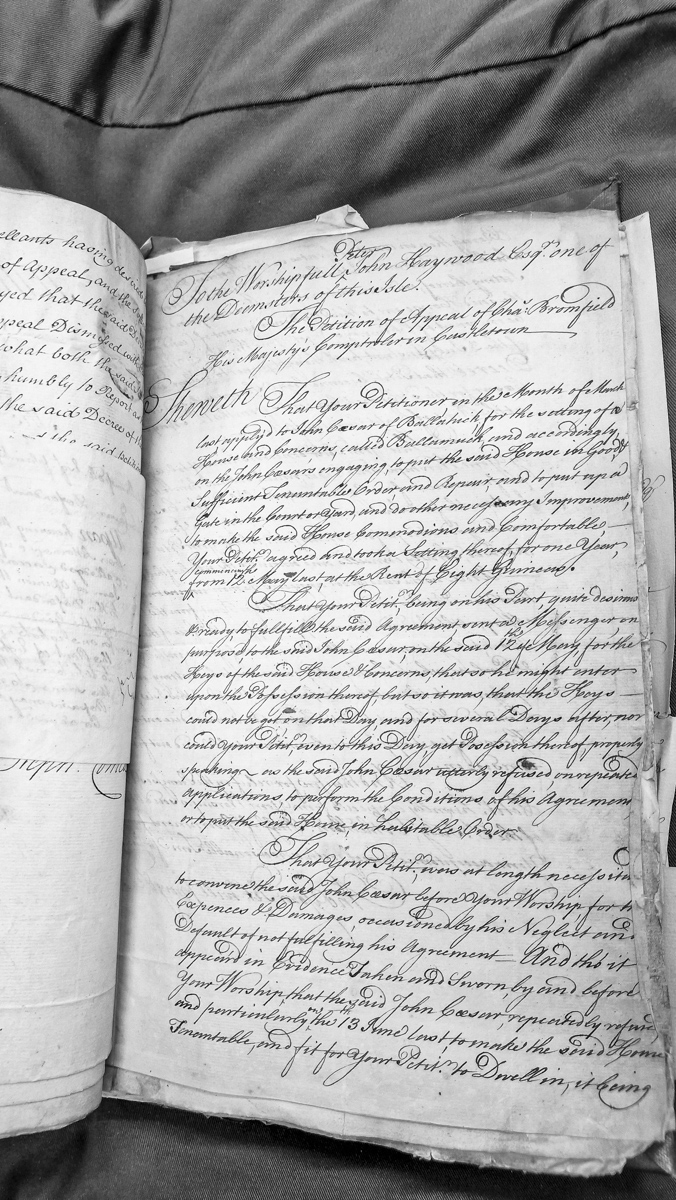 ellants having desired
of Appeal, and the
yed that the said De
ppeal Dismissed with
what both the said
humbly to Report
the said Decree of
the said Petition
Peter
To the Worshipfull John Haywood Esqr. one of
the Deemsters of this Isle.
The Petition of Appeal of Chas. Bromfield
His Majesty's Comptroler in Castletown
Sheweth That Your Petitioner in the Month of March
last apply'd to John Cæsar of Ballahick for the setting of a
House and Concerns, called Ballamuck, and accordingly,
on the John Cæsars engaging, to put the said House in Good &
Sufficient Tenantable Order, and Repair, and to put up a
Gate in the Court or Yard, and do other necessary Improvement,
to make the said House Commodious and Comfortable,
Your Petitr. agreed and took a Setting thereof, for one Year,
commencing
from 12 May last, at the Rent of Eight Guineas.
That Your Petitr. being on his Part, quite desirous
& ready to fullfill the said Agreement sent a Messenger on
purpose, to the said John Cæsar, on the said 12th of May for the
Keys of the said House & Concerns, that so he might enter
upon the Possession thereof, but so it was, that the Keys
could not be got on that Day, and for several Days after, nor
could Your Petitr. even to this Day, get Posession thereof, properly
speaking as the said John Cæsar utterly refused on repeated
applications, to perform the Conditions of his Agreement
or to put the said House, in habitable Order.
That Your Petitr. was at length necessita
to convene the said John Cæsar before Your Worship for
Expences & Damages, occasioned by his Neglect and
Default of not fulfilling his Agreement And tho' it
appeard in Evidence Taken and Sworn, by and before
Your Worship, that the said John Cæsar, repeatedly refused,
and particularly on the 13th June last, to make the said House
Tenantable, and fit for Your Petitr. to Dwell in, it being